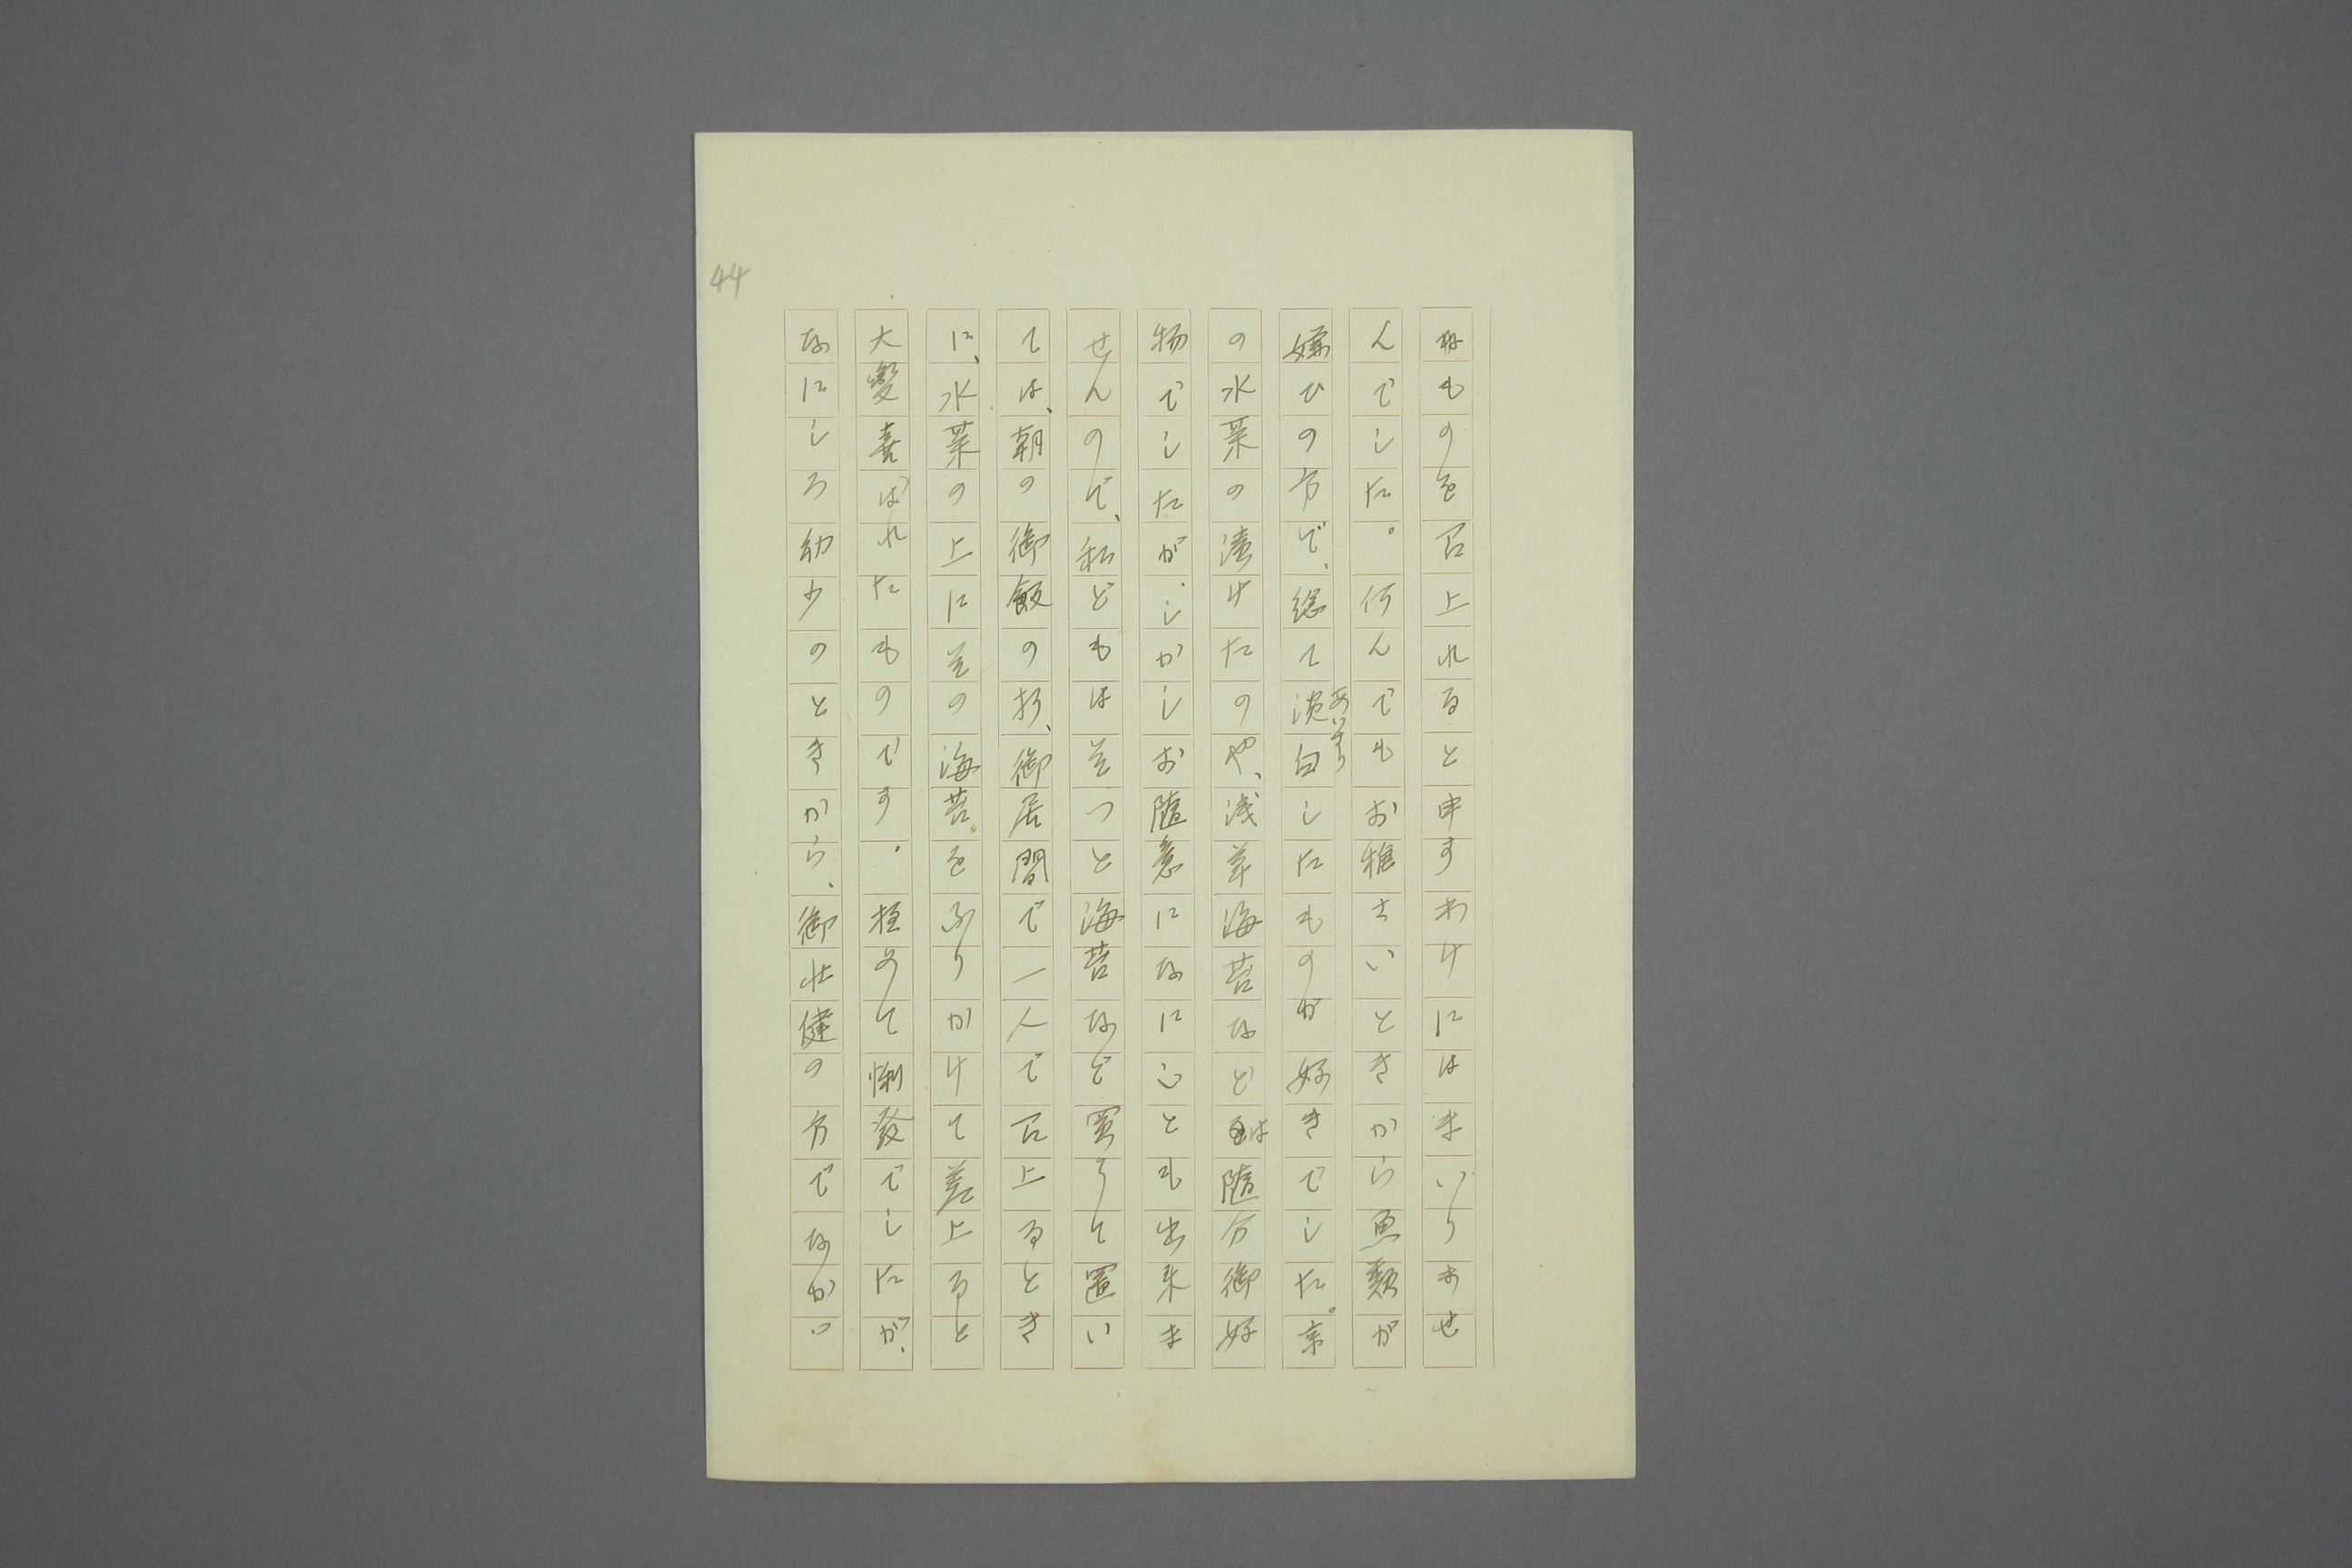 44
なものを召上れると申すわけにはまいりませ
んでした。何んでもお稚さいときから魚類が
嫌ひの方で、総て淡白したものが好きでした。京
あつさり
の水菜の漬けたのや、浅草海苔などは随分御好
物でしたが、しかしお随意になにひとも出来ま
せんので、私どもはそつと海苔など買うて置い
ては、朝の御飯の折、御居間で一人で召上るとき
に、水菜の上にその海苔をふりかけて差上ると
大變喜ばれたものです。極めて悧發でしたが、
なにしろ幼少のときから、御壮健の方でなかつ